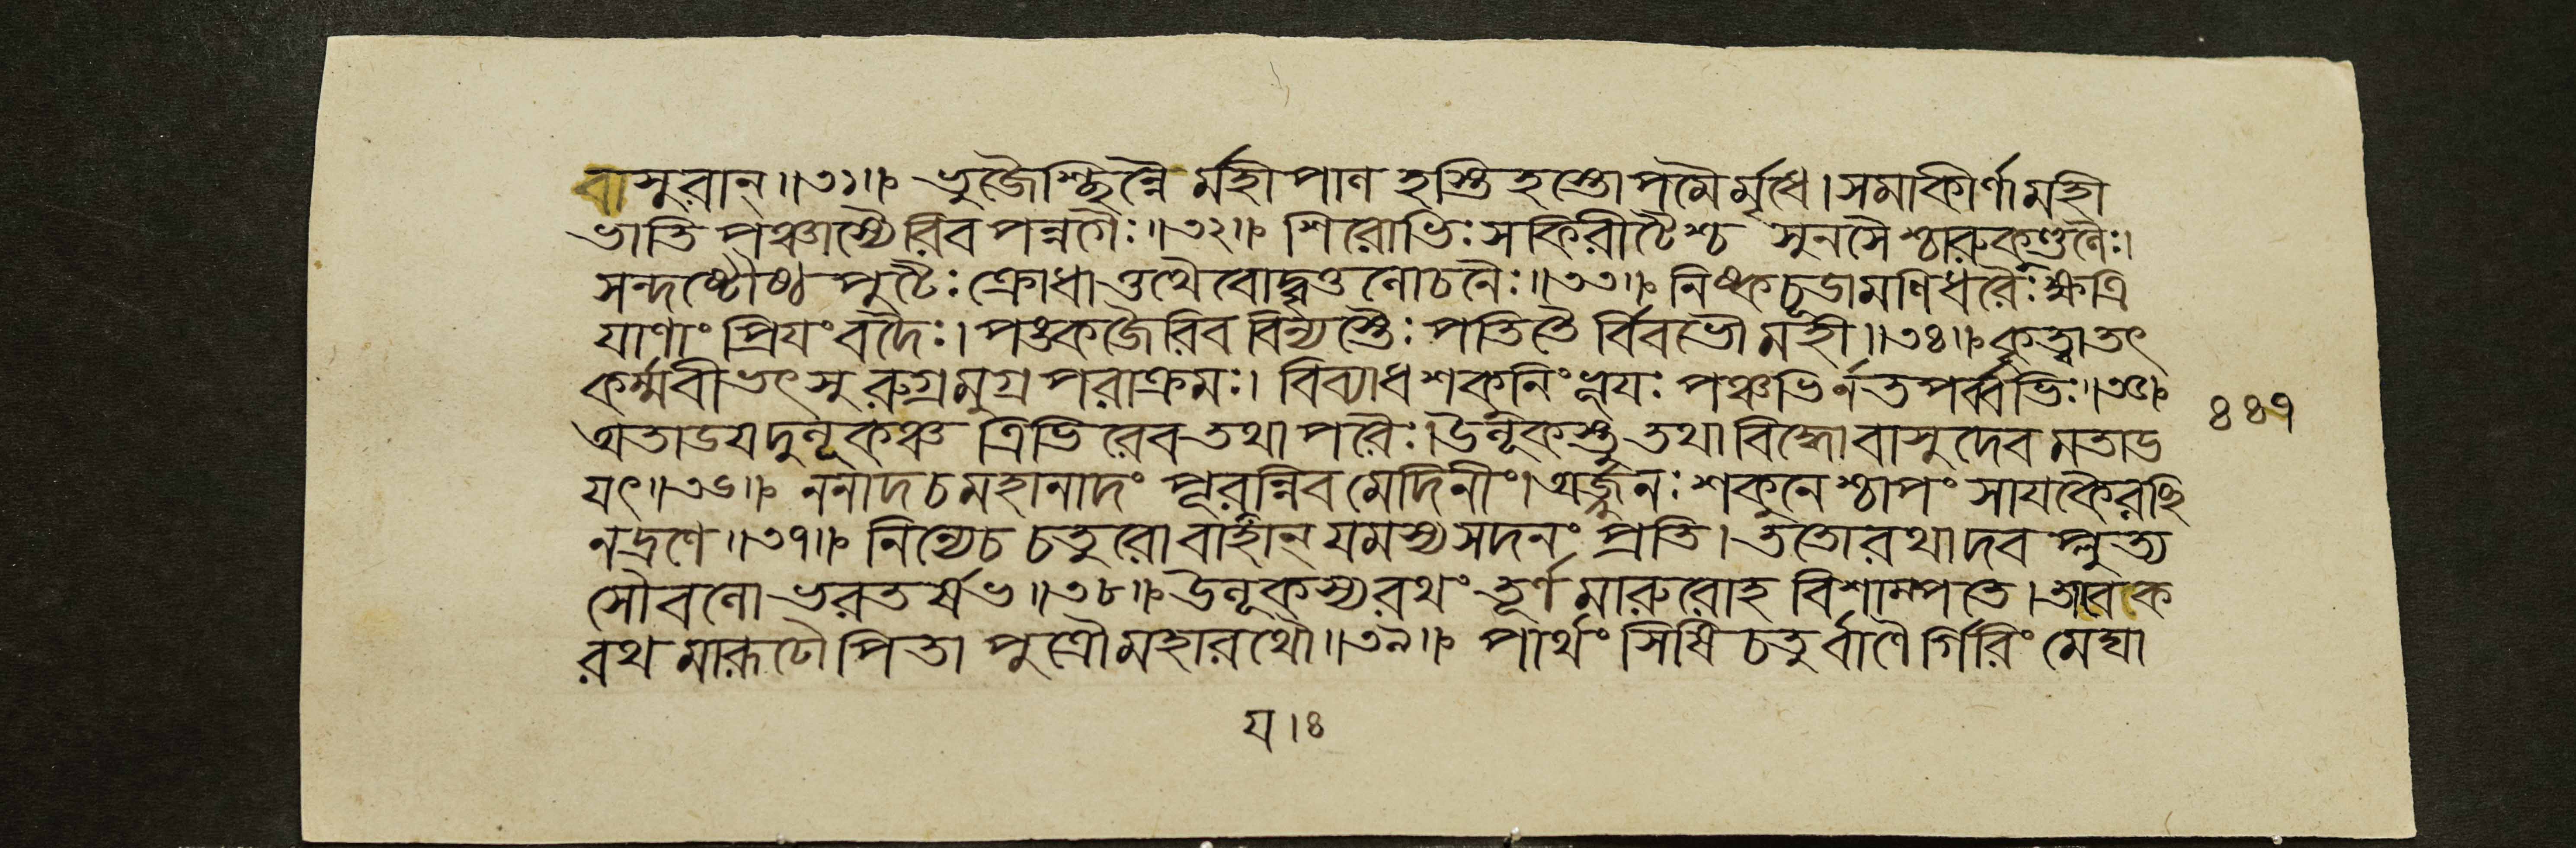 বাসুরান্॥৩১॥ ভুজৈশ্ছিন্নৈ র্মহীপাণ হস্তিহস্তোপমৈর্মৃধে।সমাকীর্ণামহী
ভাতি পঞ্চাস্যৈরিব পন্নগৈঃ॥৩২॥ শিরোভিঃ সকিরীটৈশ্চ সুনসৈশ্চারুকুণ্ডণৈঃ।
সন্দষ্টৌষ্ঠ পুটৈঃ ক্রোধাত্তথৈবোদ্বৃত্তণোচনৈঃ॥৩৩॥ নিষ্কচূডামণিধরৈঃ ক্ষত্রি
যাণাং প্রিযংবদৈঃ।পঙ্কজৈরিব বিন্যস্তৈঃ পতিতৈ র্বিবভৌমহী॥৩৪॥কৃত্বাতৎ
কর্ম্মবীভৎসুরুগ্রমুগ্রপরাক্রমঃ। বিব্যাধশকনিংভূযঃ পঞ্চভির্নতপর্ব্বভিঃ॥৩৫॥
অতাডযদুণূকঞ্চ ত্রিভিরেবতথাপরৈঃ।উণূকস্তু তথাবিদ্ধোবাসুদেবমতাড
যৎ॥৩৬॥ ননাদচমহানাদং পূরন্নিবমেদিনীং।অর্জ্জুনঃ শকুনেশ্চাপং সাযকৈরচ্ছি
নদ্রণে॥৩৭॥ নিন্যেচচতুরোবাহান্ যমস্যসদনং প্রতি।ততোরথাদবপ্লুত্য
সৌবণোভরতর্ষভ॥৩৮॥উণূকস্যরথংতূর্ণমারুরোহ বিশাম্পতে।তাবেক
রথমারূঢৌপিতাপুত্রৌমহারথৌ॥৩৯॥ পার্থং সিষিচতুর্বাণৈর্গিরিং মেঘা
৪৪৭
য।৪